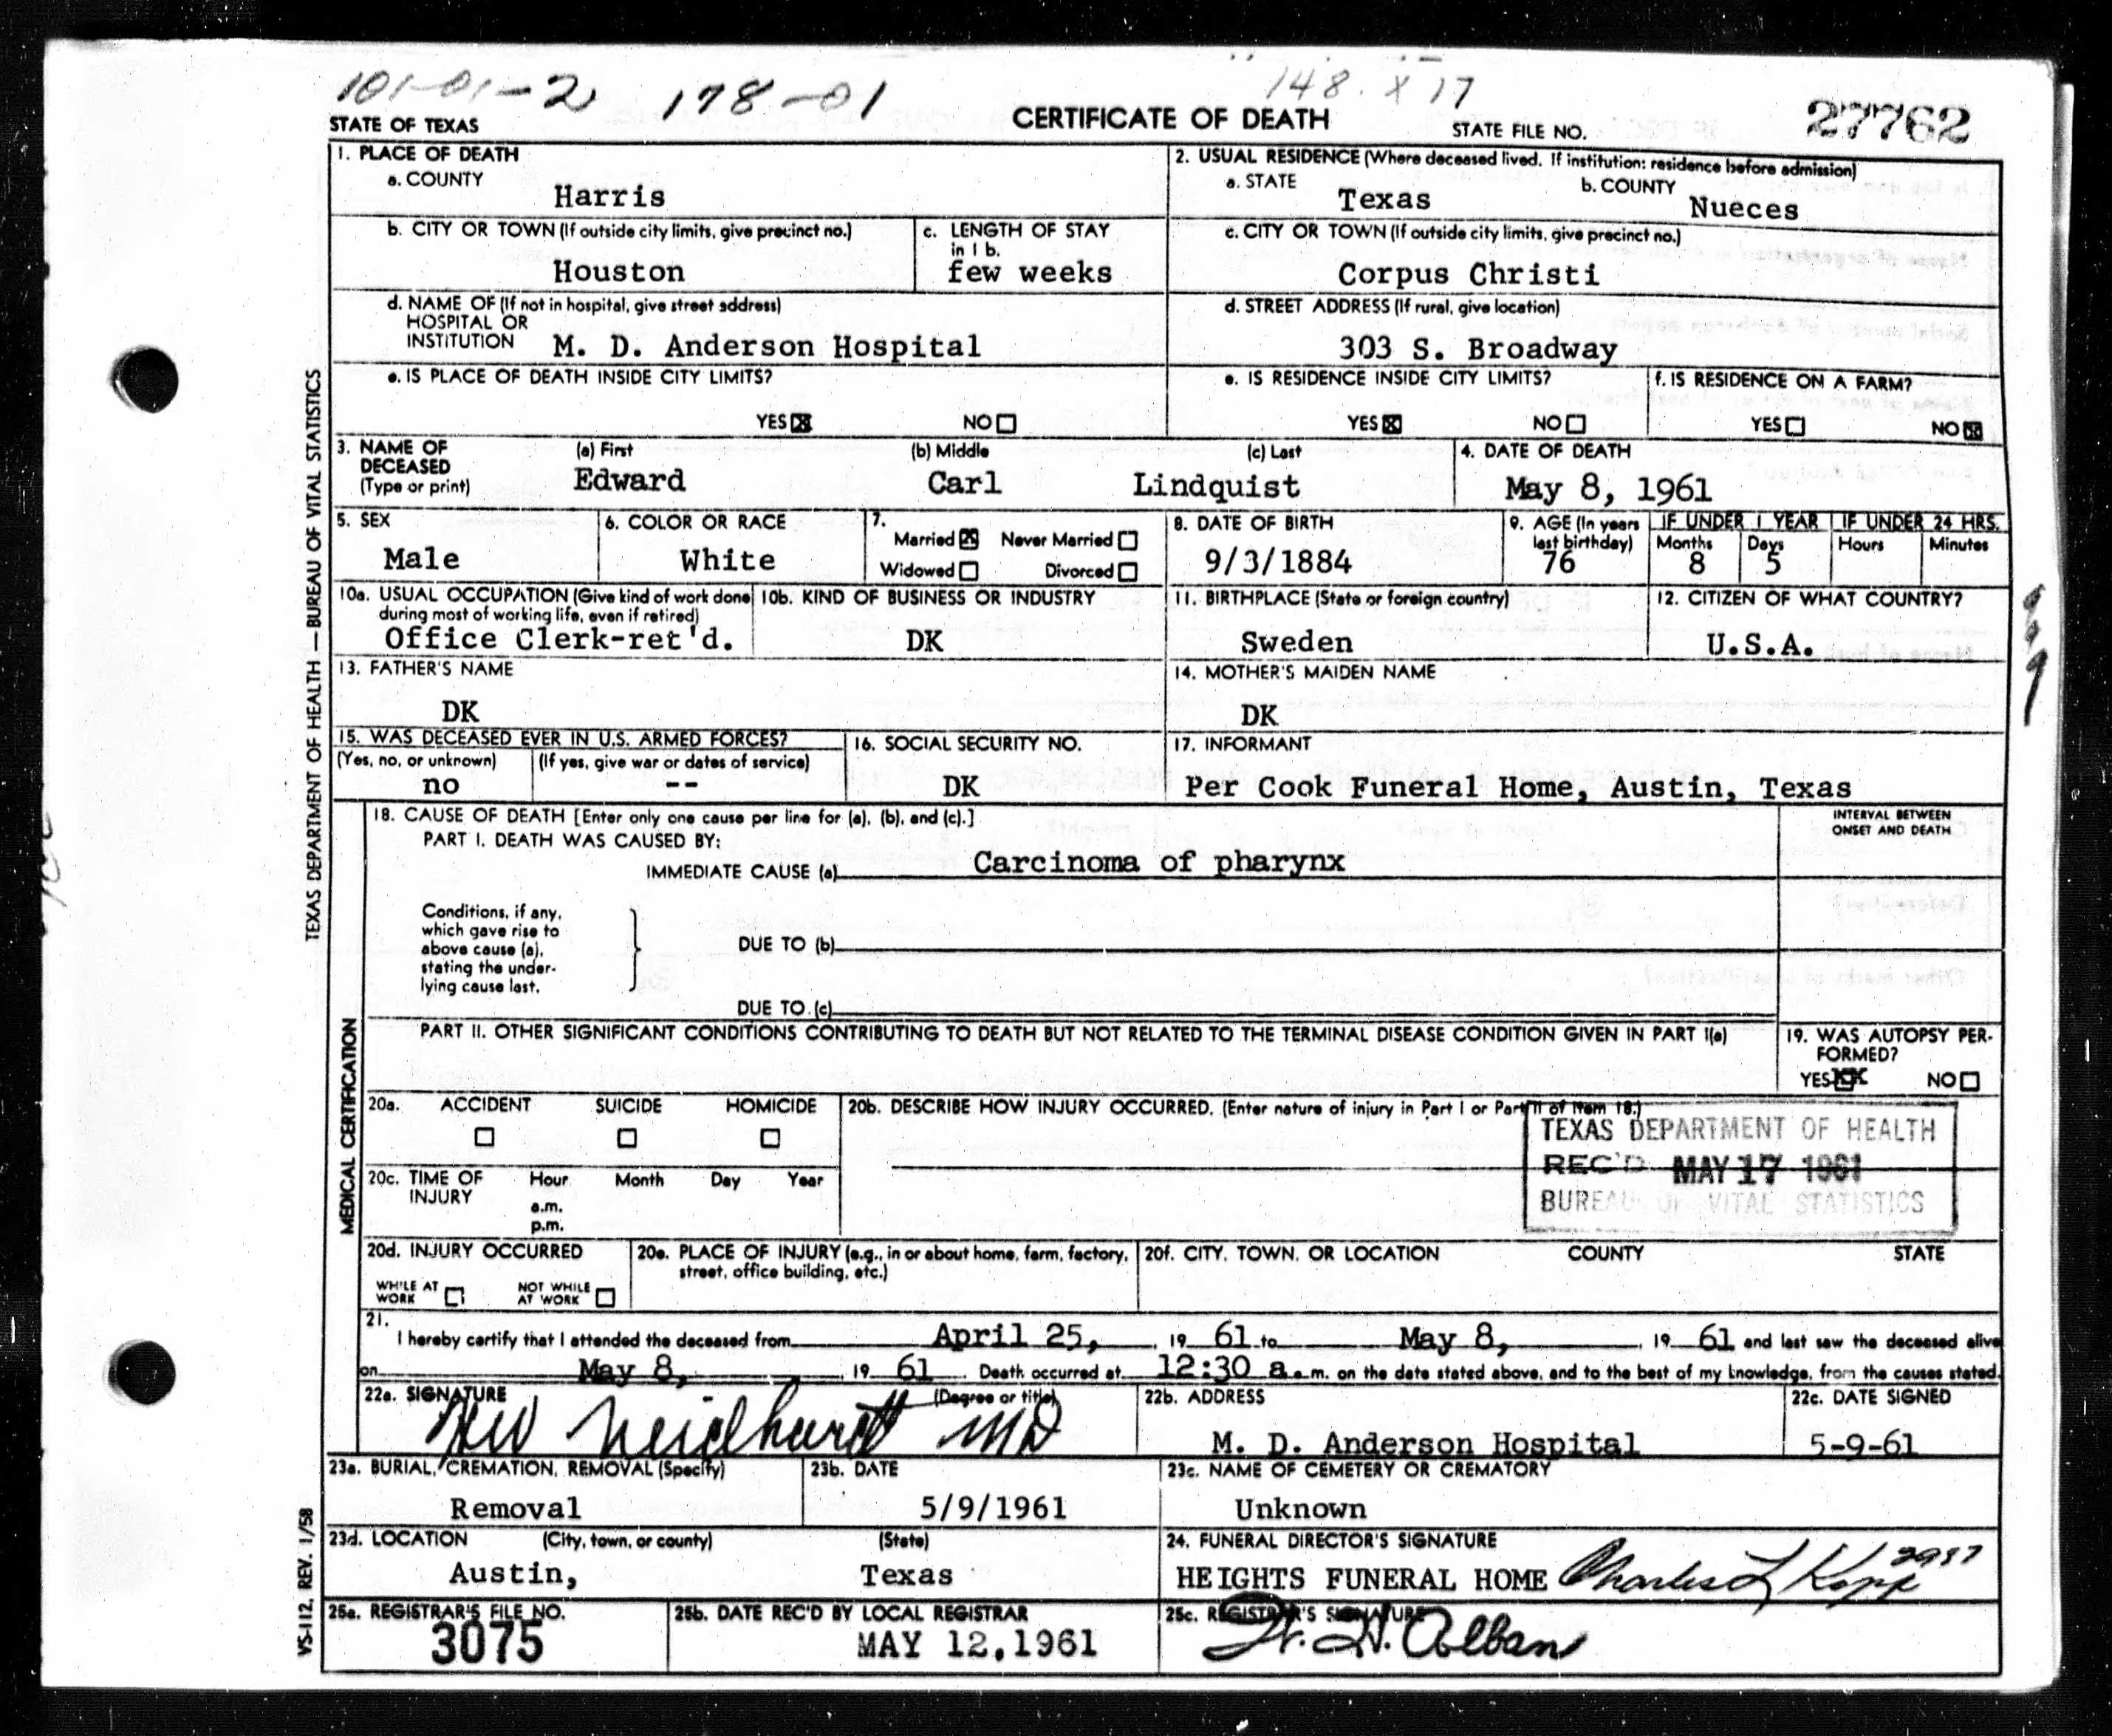 101-01-2 178-01 148. X 17
STATE OF TEXAS CERTIFICATE OF DEATH STATE FILE NO. 27762
1. PLACE OF DEATH
a. COUNTY
Harris
2. USUAL RESIDENCE (Where deceased lived. If institution: residence before admission)
a. STATE b. COUNTY
Texas Nueces
b. CITY OR TOWN (If outside city limits, give precinct no.)
Houston
c. LENGTH OF STAY
in 1 b.
few weeks
c. CITY OR TOWN (If outside city limits, give precinct no.)
Corpus Christi
d. NAME OF (If not in hospital, give street address)
HOSPITAL OR
INSTITUTION M. D. Anderson Hospital
d. STREET ADDRESS (If rural, give location)
303 S. Broadway
e. IS PLACE OF DEATH INSIDE CITY LIMITS?
YES NO
e. IS RESIDENCE INSIDE CITY LIMITS?
YES NO
f. IS RESIDENCE ON A FARM?
YES NO
3. NAME OF (a) First (b) Middle (c) Last
DECEASED
(Type or print) Edward Carl Lindquist
4. DATE OF DEATH
May 8, 1961
5. SEX
Male
6. COLOR OR RACE
White
7.
Married Never Married
Widowed Divorced
8. DATE OF BIRTH
9/3/1884
9. AGE (In years
last birthday)
76
IF UNDER 1 YEAR IF UNDER 24 HRS.
Months Days Hours Minutes
8 5
10a. USUAL OCCUPATION (Give kind of work done
during most of working life, even if retired)
Office Clerk-ret'd.
10b. KIND OF BUSINESS OR INDUSTRY
DK
11. BIRTHPLACE (State or foreign country)
Sweden
12. CITIZEN OF WHAT COUNTRY?
U.S.A.
13. FATHER'S NAME
DK
14. MOTHER'S MAIDEN NAME
DK
15. WAS DECEASED EVER IN U.S. ARMED FORCES?
(Yes, no, or unknown) (If yes, give war or dates of service)
no --
16. SOCIAL SECURITY NO.
DK
17. INFORMANT
Per Cook Funeral Home, Austin, Texas
18. CAUSE OF DEATH [Enter only one cause per line for (a), (b), and (c).]
PART I. DEATH WAS CAUSED BY:
IMMEDIATE CAUSE (a) Carcinoma of pharynx
INTERVAL BETWEEN
ONSET AND DEATH
Conditions, if any,
which gave rise to
above cause (a),
stating the under-
lying cause last.
DUE TO (b)
DUE TO (c)
PART II. OTHER SIGNIFICANT CONDITIONS CONTRIBUTING TO DEATH BUT NOT RELATED TO THE TERMINAL DISEASE CONDITION GIVEN IN PART I(a)
19. WAS AUTOPSY PER-
FORMED?
YES NO
20a. ACCIDENT SUICIDE HOMICIDE
20b. DESCRIBE HOW INJURY OCCURRED. (Enter nature of injury in Part I or Part II of Item 18.)
TEXAS DEPARTMENT OF HEALTH
REC'D MAY 17 1961
BUREAU OF VITAL STATISTICS
20c. TIME OF Hour Month Day Year
INJURY
a.m.
p.m.
20d. INJURY OCCURRED
WHILE AT
WORK
NOT WHILE
AT WORK
20e. PLACE OF INJURY (e.g., in or about home, farm, factory,
street, office building, etc.)
20f. CITY, TOWN, OR LOCATION COUNTY STATE
21.
I hereby certify that I attended the deceased from April 25, 19 61 to May 8, 19 61 and last saw the deceased alive
on May 8, 19 61 Death occurred at 12:30 a.m. on the date stated above, and to the best of my knowledge, from the causes stated.
22a. SIGNATURE (Degree or title)
Neidhardt MD
22b. ADDRESS
M. D. Anderson Hospital
22c. DATE SIGNED
5-9-61
23a. BURIAL, CREMATION, REMOVAL (Specify)
Removal
23b. DATE
5/9/1961
23c. NAME OF CEMETERY OR CREMATORY
Unknown
23d. LOCATION (City, town, or county) (State)
Austin, Texas
24. FUNERAL DIRECTOR'S SIGNATURE
HEIGHTS FUNERAL HOME Charles L Kopp
25a. REGISTRAR'S FILE NO.
3075
25b. DATE REC'D BY LOCAL REGISTRAR
MAY 12, 1961
25c. REGISTRAR'S SIGNATURE
W. H. Alban
TEXAS DEPARTMENT OF HEALTH — BUREAU OF VITAL STATISTICS
MEDICAL CERTIFICATION
VS-112, REV. 1/58